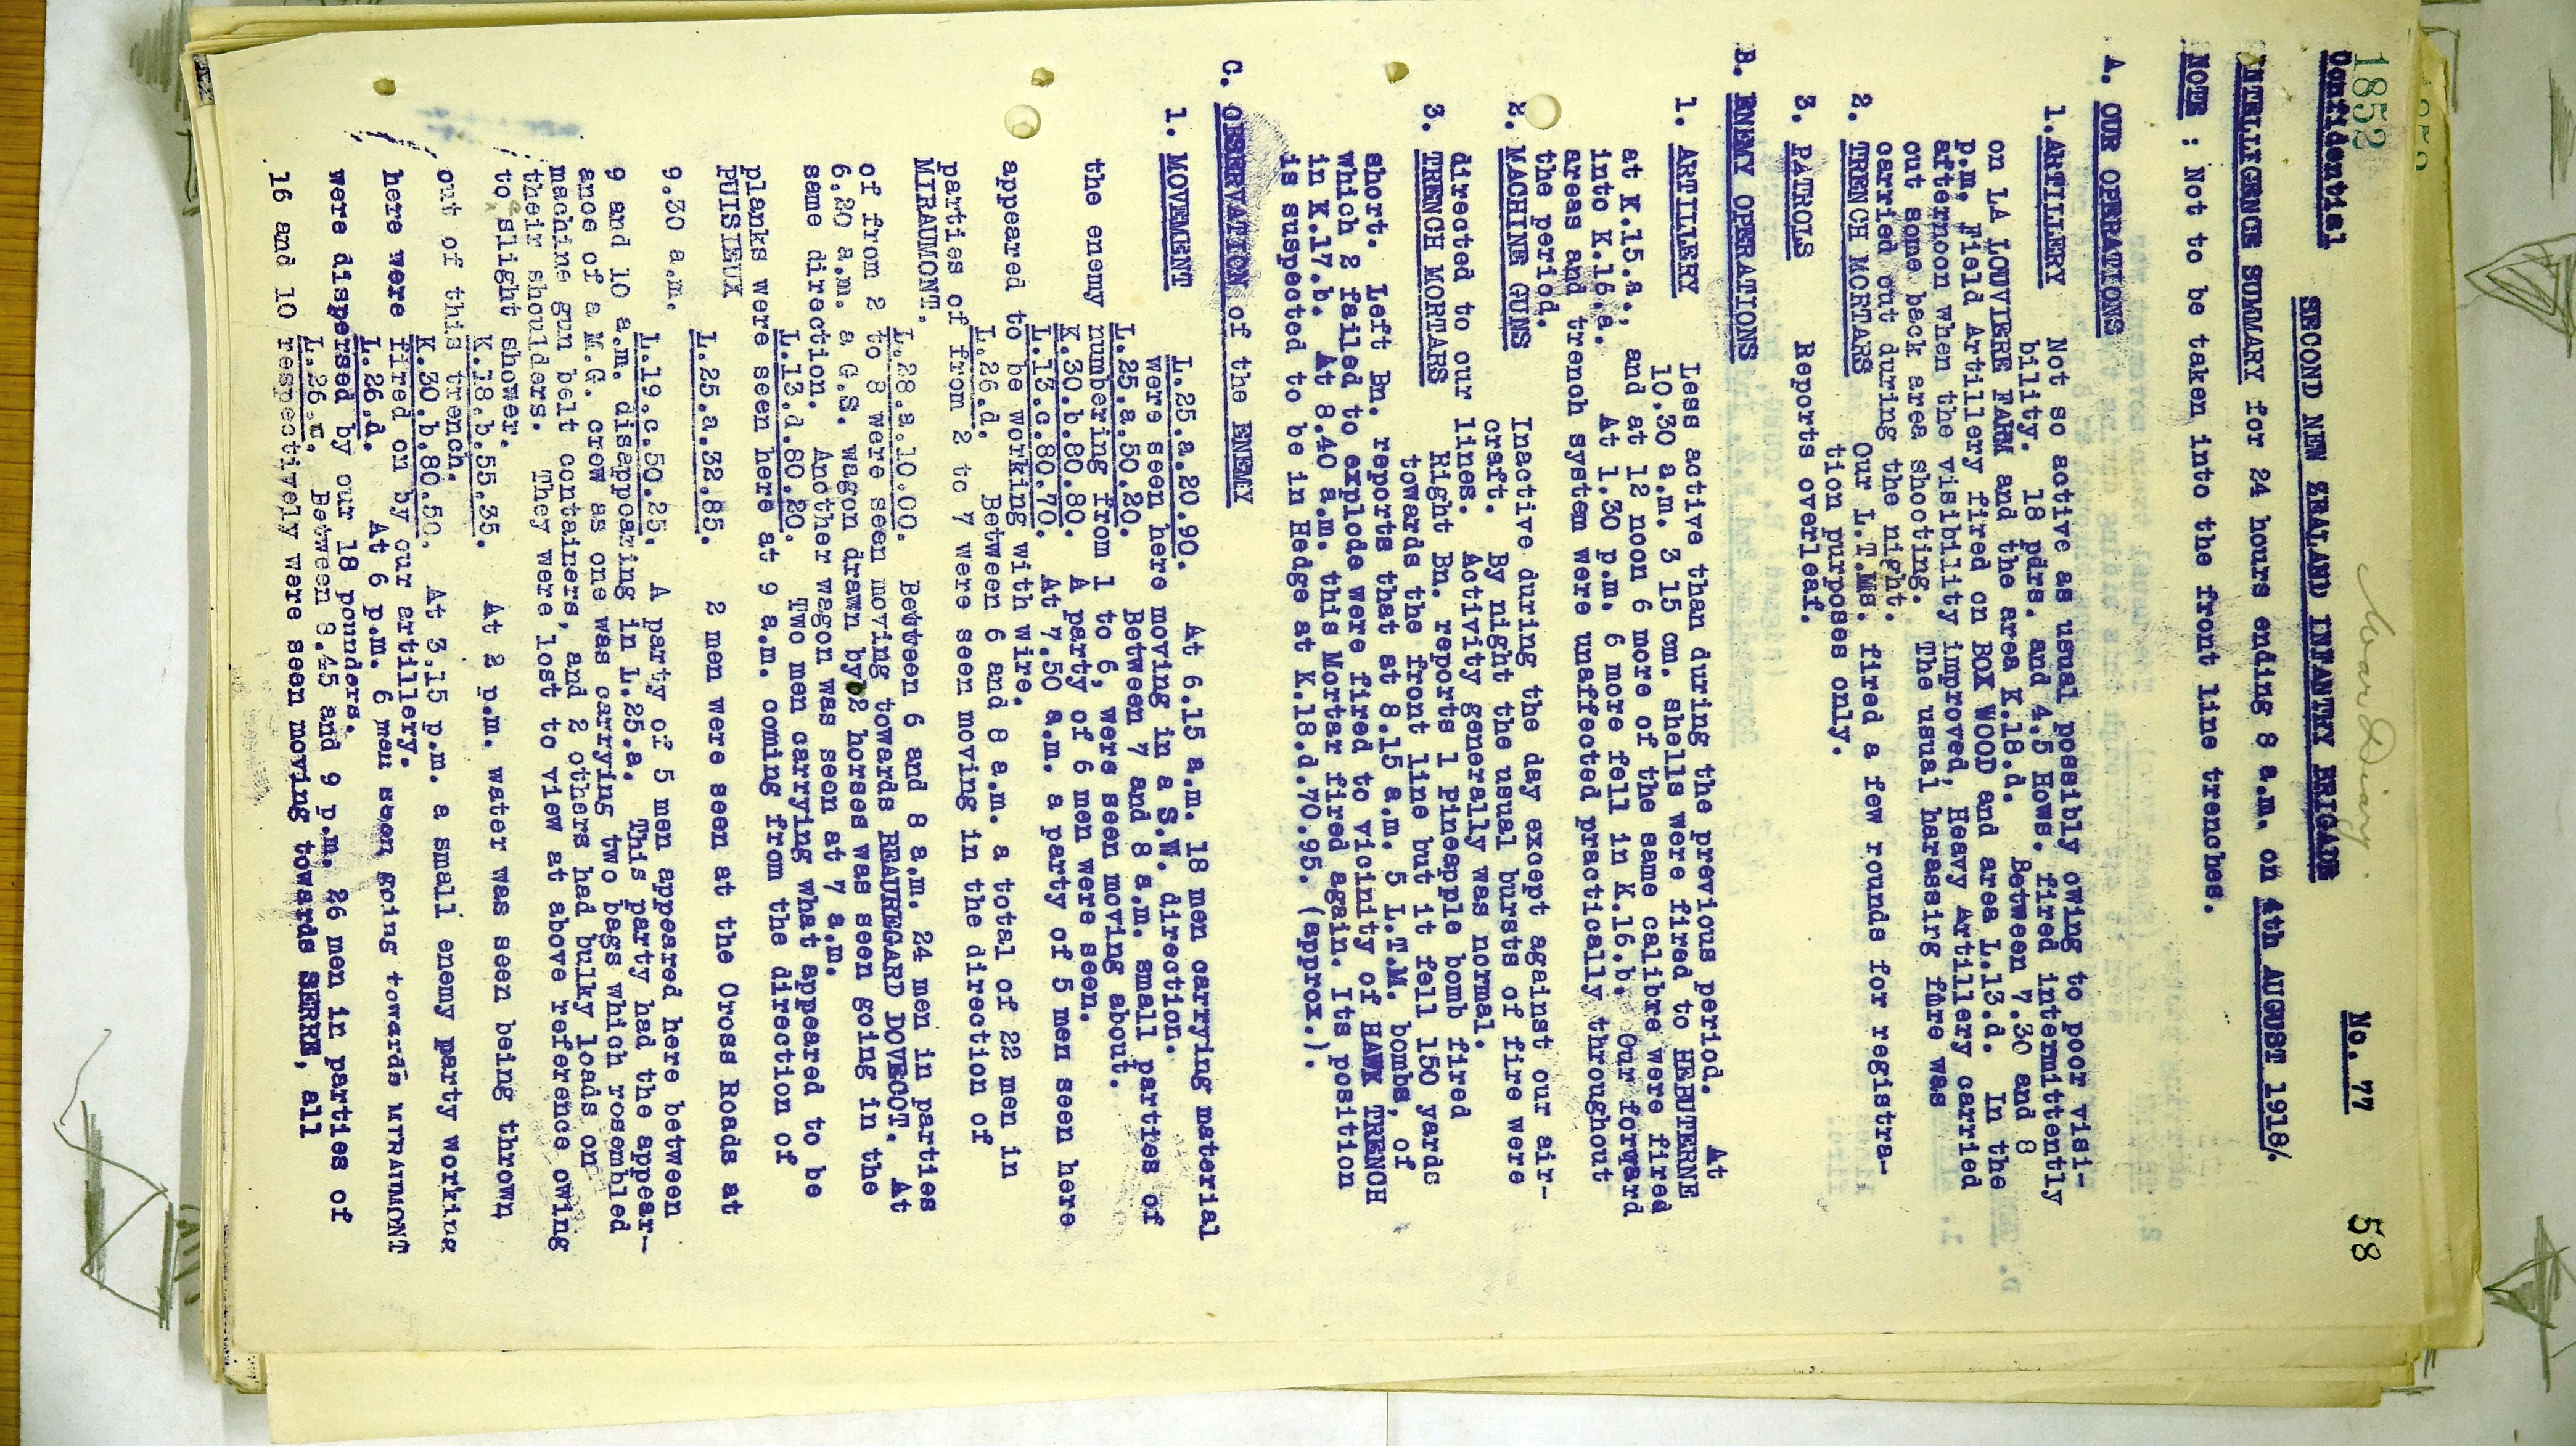 1852
War Diary.
58
Confidential
No. 77
SECOND NEW ZEALAND INFANTRY BRIGADE
INTELLIGENCE SUMMARY for 24 hours ending 8 a.m. on 4th AUGUST 1918/.
NOTE : Not to be taken into the front line trenches.
A. OUR OPERATIONS
1. ARTILLERY Not so active as usual possibly owing to poor visi-
bility. 18 pdrs. and 4.5 Hows. fired intermittently
on LA LOUVIERE FARM and the area K.18.d. Between 7.30 and 8
p.m. Field Artillery fired on BOX WOOD and area L.13.d. In the
afternoon when the visibility improved, Heavy Artillery carried
out some back area shooting. The usual harassing fire was
carried out during the night.
2. TRENCH MORTARS Our L.T.Ms. fired a few rounds for registra-
tion purposes only.
3. PATROLS Reports overleaf.
B. ENEMY OPERATIONS
1. ARTILLERY Less active than during the previous period. At
10.30 a.m. 3 15 cm. shells were fired to HEBUTERNE
at K.15.a., and at 12 noon 6 more of the same calibre were fired
into K.16.a. At 1.30 p.m. 6 more fell in K.16.b. Our forward
areas and trench system were unaffected practically throughout
the period.
2. MACHINE GUNS Inactive during the day except against our air-
craft. By night the usual bursts of fire were
directed to our lines. Activity generally was normal.
3. TRENCH MORTARS Right Bn. reports 1 pineapple bomb fired
towards the front line but it fell 150 yards
short. Left Bn. reports that at 8.15 a.m. 5 L.T.M. bombs, of
which 2 failed to explode were fired to vicinity of HAWK TRENCH
in K.17.b. At 8.40 a.m. this Mortar fired again. Its position
is suspected to be in Hedge at K.18.d.70.95. (approx.).
C. OBSERVATION of the ENEMY
1. MOVEMENT
L.25.a.20.90. At 6.15 a.m. 18 men carrying material
were seen here moving in a S.W. direction.
L.25.a.50.20. Between 7 and 8 a.m. small parties of
the enemy numbering from 1 to 6, were seen moving about.
K.30.b.80.80. A party of 6 men were seen.
L.13.c.80.70. At 7.50 a.m. a party of 5 men seen here
appeared to be working with wire.
L.26.d. Between 6 and 8 a.m. a total of 22 men in
parties of from 2 to 7 were seen moving in the direction of
MIRAUMONT.
L.28.a.10.00. Between 6 and 8 a.m. 24 men in parties
of from 2 to 8 were seen moving towards BEAUREGARD DOVECOT. At
6.20 a.m. a G.S. wagon drawn by 2 horses was seen going in the
same direction. Another wagon was seen at 7 a.m.
L.13.d.80.20. Two men carrying what appeared to be
planks were seen here at 9 a.m. coming from the direction of
PUISIEUX
L.25.a.32.85. 2 men were seen at the Cross Roads at
9.30 a.m.
L.19.c.50.25. A party of 5 men appeared here between
9 and 10 a.m. disappearing in L.25.a. This party had the appear-
ance of a M.G. crew as one was carrying two bags which rosembled
machine gun belt containers, and 2 others had bulky loads on
their shoulders. They were lost to view at above reference owing
to a slight shower.
K.18.b.55.35. At 2 p.m. water was seen being thrown
out of this trench.
K.30.b.80.50. At 3.15 p.m. a small enemy party working
here were fired on by our artillery.
L.26.d. At 6 p.m. 6 men seen going towards MIRAUMONT
were dispersed by our 18 pounders.
L.26. Between 8.45 and 9 p.m. 26 men in parties of
16 and 10 respectively were seen moving towards SERRE, all